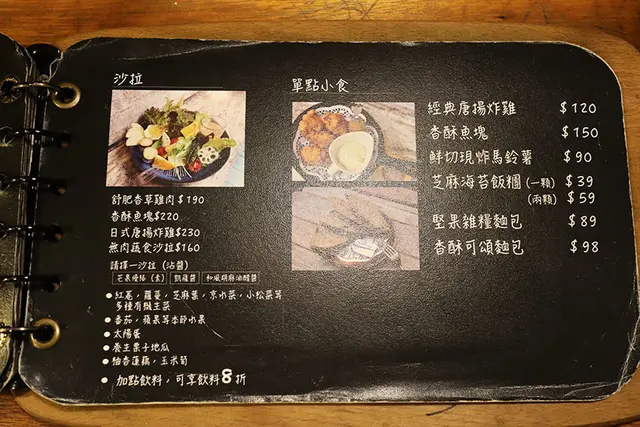 沙拉
舒肥香草雞肉$190
香酥魚塊$220
日式唐揚炸雞$230
無肉蔬食沙拉$160
請擇一沙拉（沾醬）
芒果優格（素） 凱薩醬 和風胡麻油醋醬
●紅卷，蘿蔓，芝麻葉，京水菜，小松菜等
多種有機生菜
●番茄，蘋果等季節水果
●太陽蛋
●養生栗子地瓜
●油香蓮藕，玉米筍
●加點飲料，可享飲料8折
單點小食
經典唐揚炸雞 $120
香酥魚塊 $150
鮮切現炸馬鈴薯 $90
芝麻海苔飯糰（一顆） $39
（兩顆） $59
堅果雜糧麵包 $89
香酥可頌麵包 $98